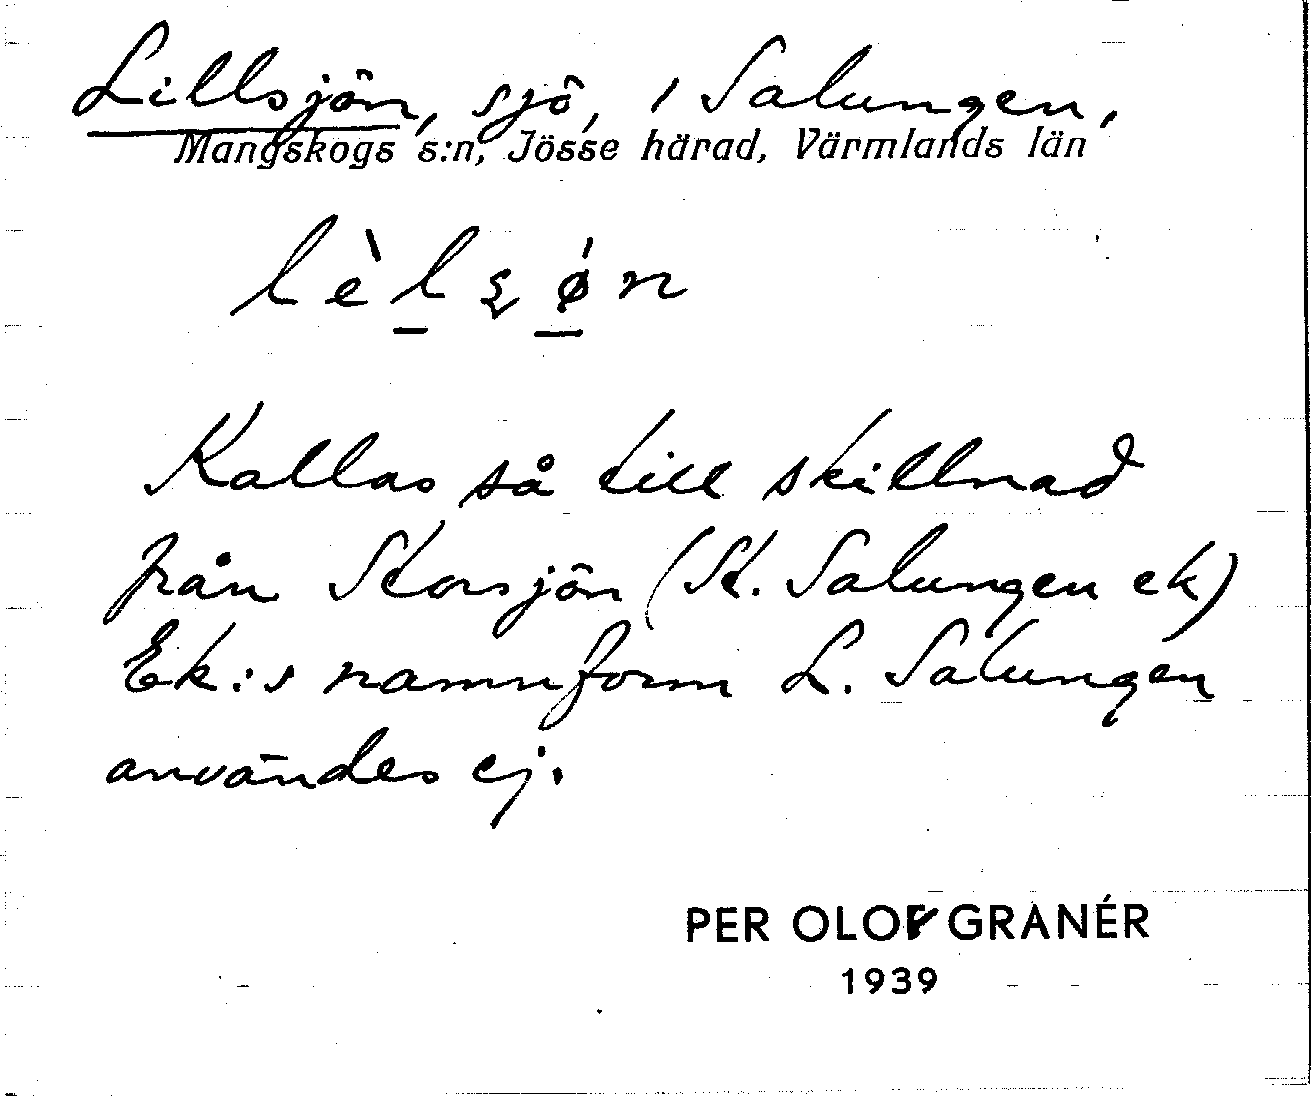 Lillsjön, sjö, i Salungen,
Mangskogs s:n, Jösse härad, Värmlands län
Kallas så till skillnad
från Storsjön (St. Salungen ek)
Ek:s namnform L. Salungen
användes ej.
PER OLOF GRANÉR
1939